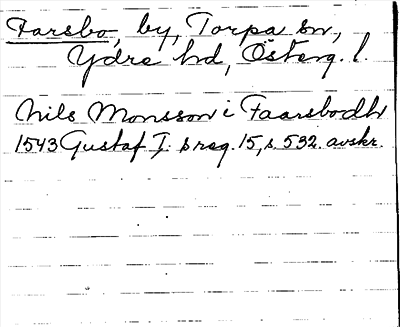 Farsbo, by, Torpa sn,
Ydre hd, Österg. l.
Nils Monsson i Faarsbodh
1543 Gustaf I. s reg. 15, s. 532. avskr.